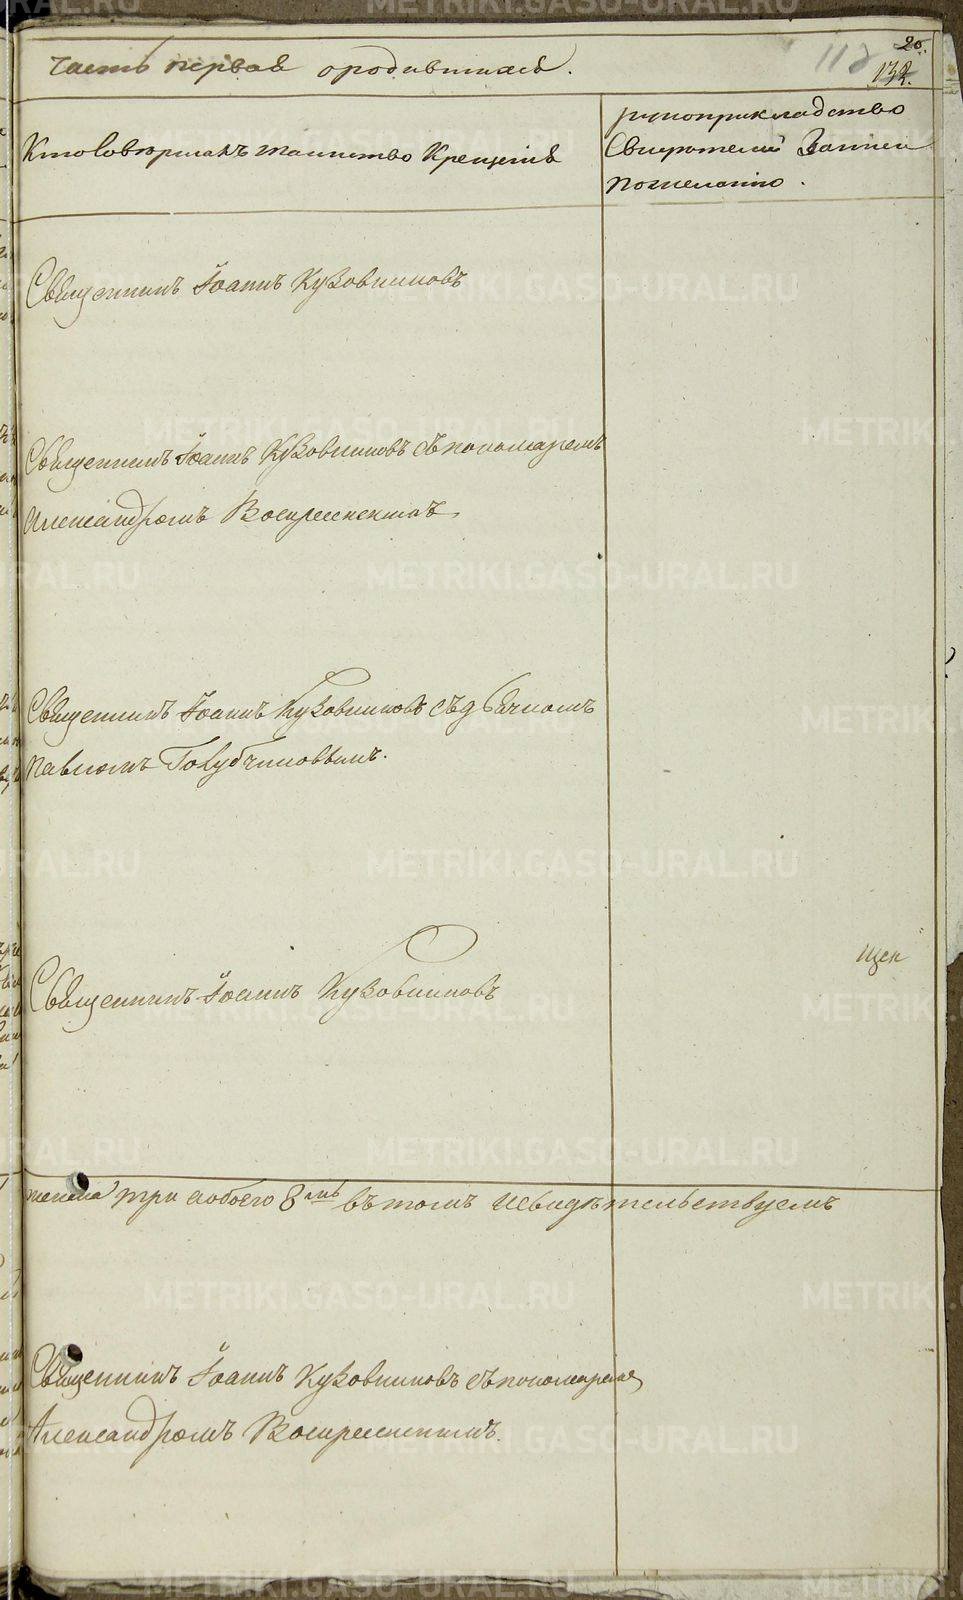 20.
112
132.
Часть первая ородившихся.
Кто Совершалъ таинство Крещенiя
рукоприкладство
Свидѣтелей Записи
пожеланiю.
Священникъ Iоаннъ Кузовниковъ
Священникъ Iоаннъ Кузовниковъ съ пономаремъ
Александромъ Воскресенскимъ.
Священникъ Iоаннъ Кузовниковъ съ дьячкомъ
Павломъ Голубчиковымъ.
Священникъ Iоаннъ Кузовниковъ
три обоего въ томъ и свидѣтельствуемъ
Священникъ Iоаннъ Кузовниковъ съ пономаремъ
Александромъ Воскресенскимъ.
METRIKI.GASO-URAL.RU